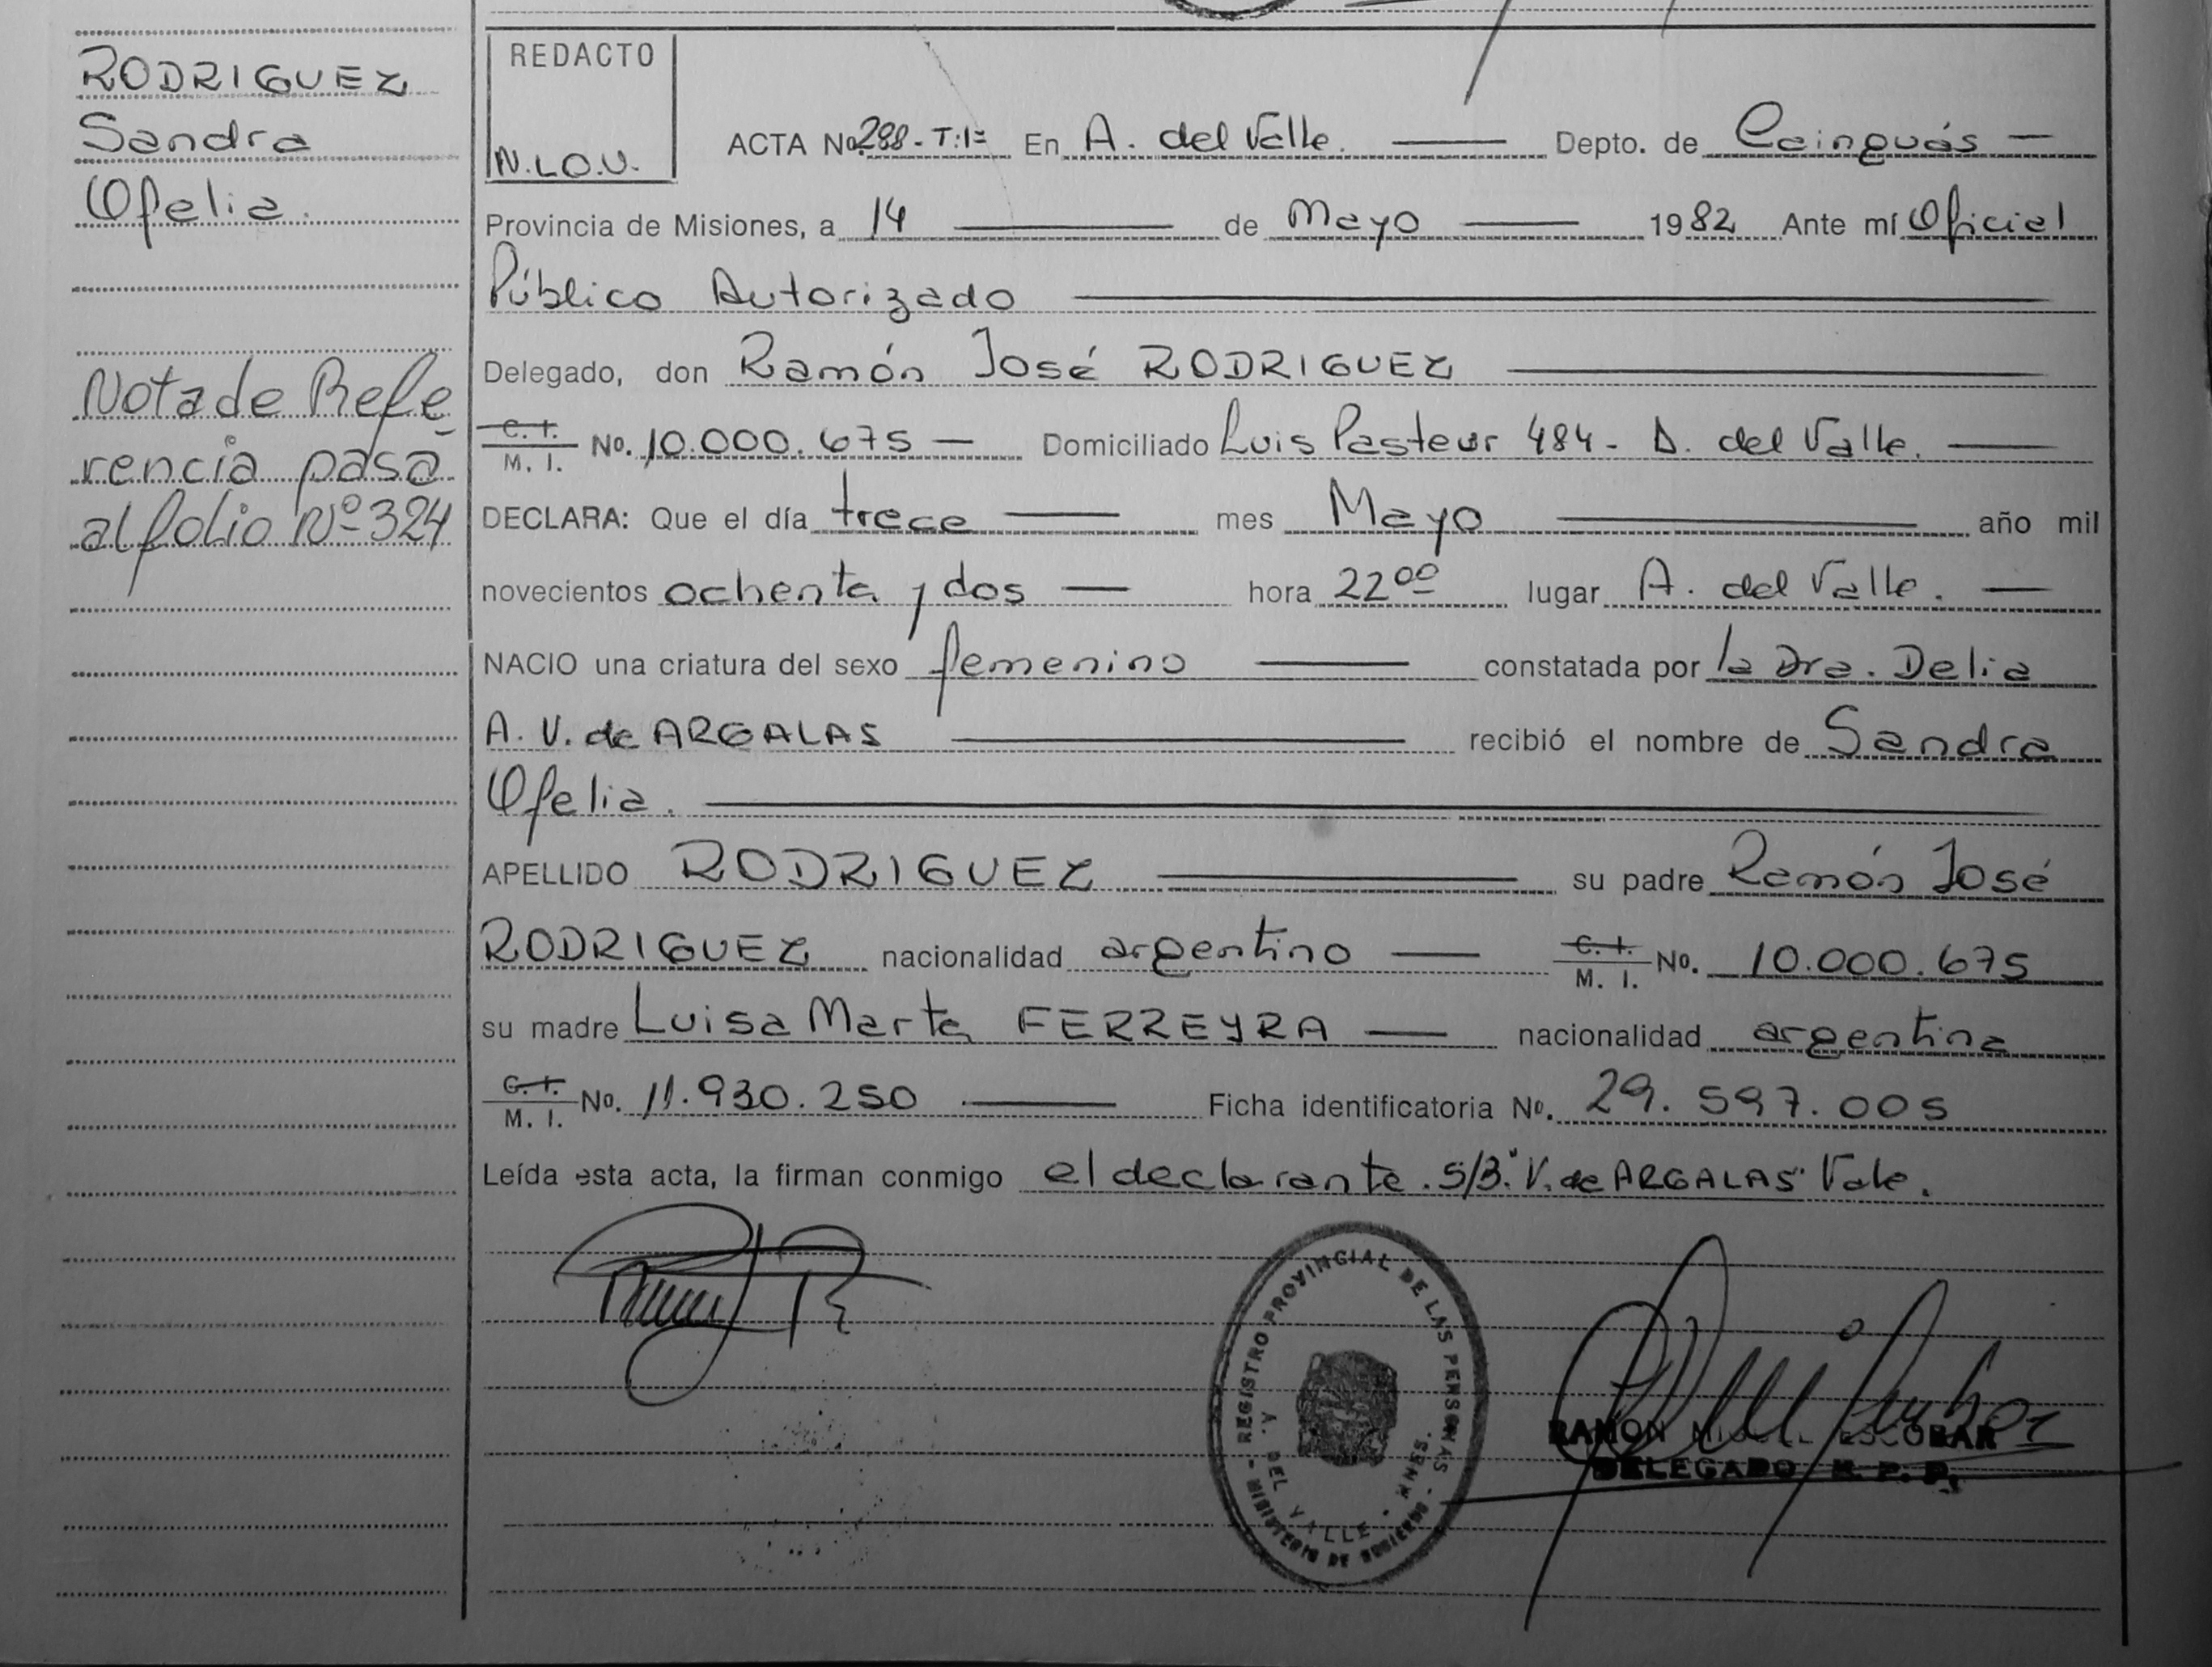 RODRIGUEZ
Sandra
Ofelia.
Nota de Refe
rencia pasa
al folio Nº 324
REDACTO
N.L.O.V.
ACTA No. 288 - T:1º En A. del Valle. Depto. de Cainguás
Provincia de Misiones, a 14 de Mayo 1982 Ante mí Oficial
Público Autorizado
Delegado, don Ramón José RODRIGUEZ
C. I. / M. I. No. 10.000.675 - Domiciliado Luis Pasteur 484 - A. del Valle.
DECLARA: Que el día trece mes Mayo año mil
novecientos ochenta y dos hora 22 00 lugar A. del Valle.
NACIO una criatura del sexo femenino constatada por la Dra. Delia
A. V. de ARGALAS recibió el nombre de Sandra
Ofelia.
APELLIDO RODRIGUEZ su padre Ramón José
RODRIGUEZ nacionalidad argentino C. I. / M. I. No. 10.000.675
su madre Luisa Marta FERREYRA nacionalidad argentina
C. I. / M. I. No. 11.930.250 Ficha identificatoria No. 29.597.005
Leída esta acta, la firman conmigo el declarante. S/B: "V. de ARGALAS" Vale.
REGISTRO PROVINCIAL DE LAS PERSONAS - MINISTERIO DE GOBIERNO -
A. DEL VALLE - MNES.
RAMON MIGUEL ESCOBAR
DELEGADO R. P. P.